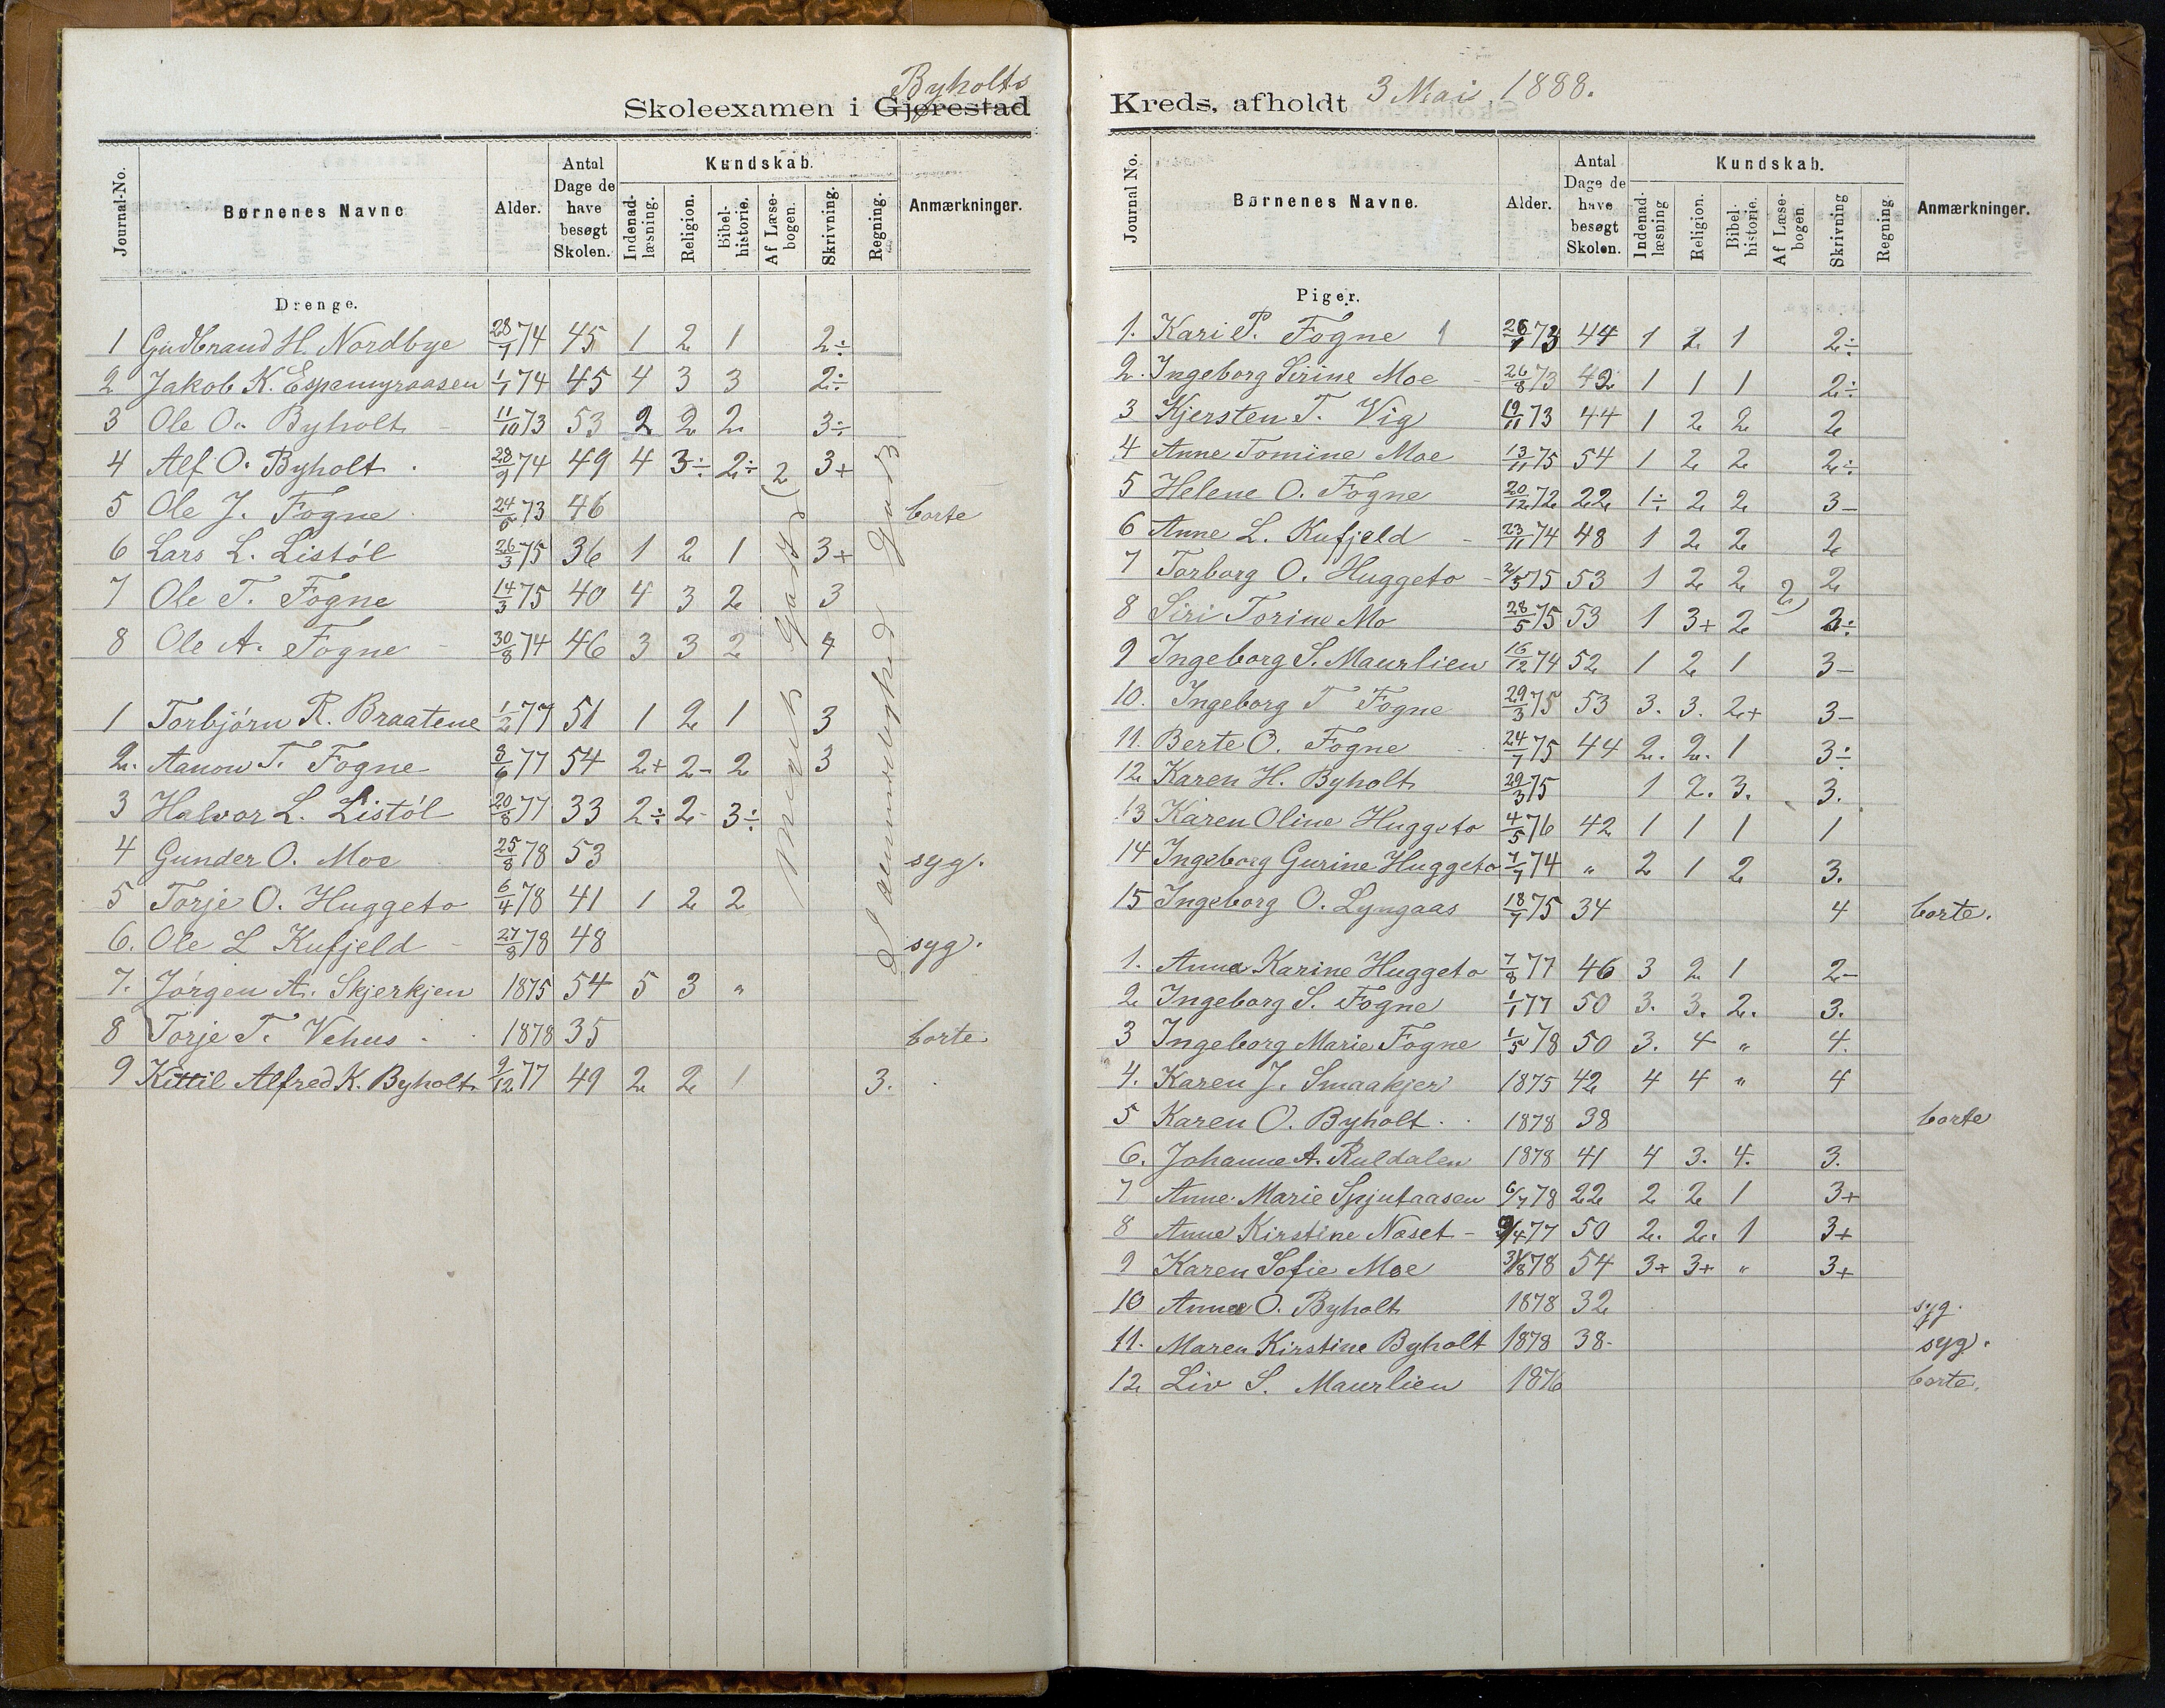 Byholts
Skoleexamen i Gjørestad
Journal-No. Børnenes Navne Alder. Antal Dage de have besøgt Skolen. Kundskab. Indenad-læsning. Religion. Bibel-historie. Af Læse-bogen. Skrivning. Regning. Anmærkninger.
Drenge.
1 Gudbrand H. Nordbye 28/7 74 45 1 2 1 2÷
2 Jakob K. Espemyraasen 1/1 74 45 4 3 3 2÷
3 Ole O. Byholt 11/10 73 53 2 2 2 3÷
4 Alf O. Byholt 28/9 74 49 4 3÷ 2÷ 3+
5 Ole J. Fogne 24/5 73 46 borte
6 Lars L. Listöl 26/3 75 36 1 2 1 3+
7 Ole T. Fogne 14/3 75 40 4 3 2 3
8 Ole A. Fogne 30/8 74 46 3 3 2 4
1 Torbjörn R. Braatene 1/2 77 51 1 2 1 3
2. Aanon T. Fogne 8/6 77 54 2+ 2- 2 3
3 Halvor L. Listöl 20/8 77 33 2÷ 2- 3÷
4 Gunder O. Moe 25/8 78 53 syg.
5 Torje O. Huggeto 6/4 78 41 1 2 2
6. Ole L Kufjeld 27/8 78 48 syg.
7. Jörgen A. Skjerkjen 1875 54 5 3 "
8 Torje T. Vehus 1878 35 borte
9 Kittil Alfred K. Byholt 9/12 77 49 2 2 1 3.
Kreds, afholdt 3 Mai 1888.
Journal No. Børnenes Navne. Alder. Antal Dage de have besøgt Skolen. Kundskab. Indenad-læsning Religion. Bibel-historie. Af Læse-bogen. Skrivning Regning. Anmærkninger.
Piger.
1. Kari P. Fogne 1 73 44 1 1 2÷
2. Ingeborg Sirine Moe 26/8 73 42 1 1 1 2÷
3 Kjersten T. Vig 19/11 73 44 1 2 2 2
4 Anne Tomine Moe 13/11 75 54 1 2 2 2÷
5 Helene O. Fogne 20/12 72 22 1÷ 2 2 3-
6 Anne L. Kufjeld 23/11 74 48 1 2 2 2
7 Torborg O. Huggeto 2/5 75 53 1 2 2 2
8 Siri Torine Mo 28/5 75 53 1 3+ 2 2÷
9 Ingeborg S. Maurlien 16/12 74 52 1 2 1 3-
10. Ingeborg T Fogne 29/3 75 53 3. 3. 2+ 3-
11. Berte O. Fogne 24/7 75 44 2. 2. 1 3÷
12 Karen H. Byholt 29/3 75 1 2. 3. 3.
13 Karen Oline Huggeto 4/5 76 42 1 1 1 1
14 Ingeborg Gurine Huggeto 7/7 74 " 2 1 2 3.
15 Ingeborg O. Lyngaas 18/7 75 34 4 borte.
1. Anna Karine Huggeto 7/8 77 46 3 2 1 2-
2 Ingeborg S. Fogne 1/1 77 50 3. 3. 2. 3.
3 Ingeborg Marie Fogne 1/5 78 50 3. 4 " 4.
4. Karen J. Smaakjer 1875 42 4 4 " 4
5 Karen O. Byholt 1878 38 borte
6. Johanne A. Ruldalen 1878 41 4 3. 4. 3.
7 Anne Marie Spjutaasen 6/7 78 22 2 2 1 3+
8 Anne Kirstine Næset 9/4 77 50 2. 2. 1 3+
9 Karen Sofie Moe 31/8 78 54 3+ 3+ " 3+
10 Anna O. Byholt 1878 32 syg.
11. Maren Kirstine Byholt 1878 38 syg.
12 Liv S. Maurlien 1876 borte.